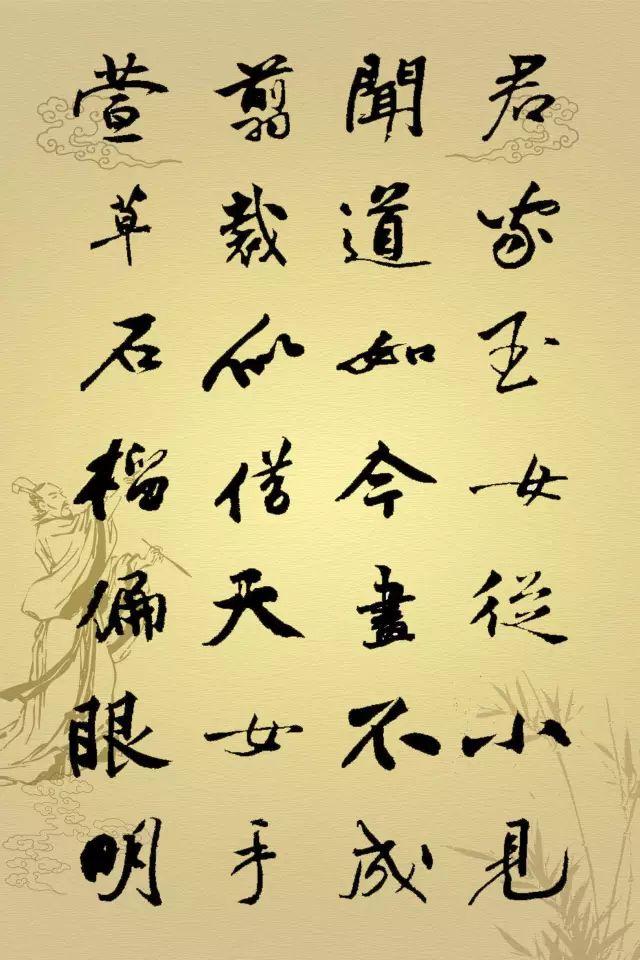 君家玉女從小見
聞道如今畫不成
翦裁似借天女手
萱草石榴偏眼明